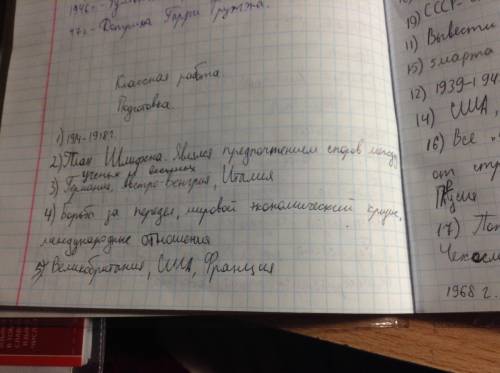 47г.- Доктрина Гарри Трумэна.
Классная работа.
Подготовка.
1) 1914-1918г.
2) План Шлифена. Являлся предпочтением споров между
учеными и
3) Германия, Австро-Венгрия, Италия
4) Борьба за передел, мировой экономический кризис,
международные отношения
5) Великобритания, США, Франция
19) СССР-
11) Вывести
15) 5 марта
12) 1939-194
14) США,
16) Все
от стр
17) Пол
Чехосл
1968 г.